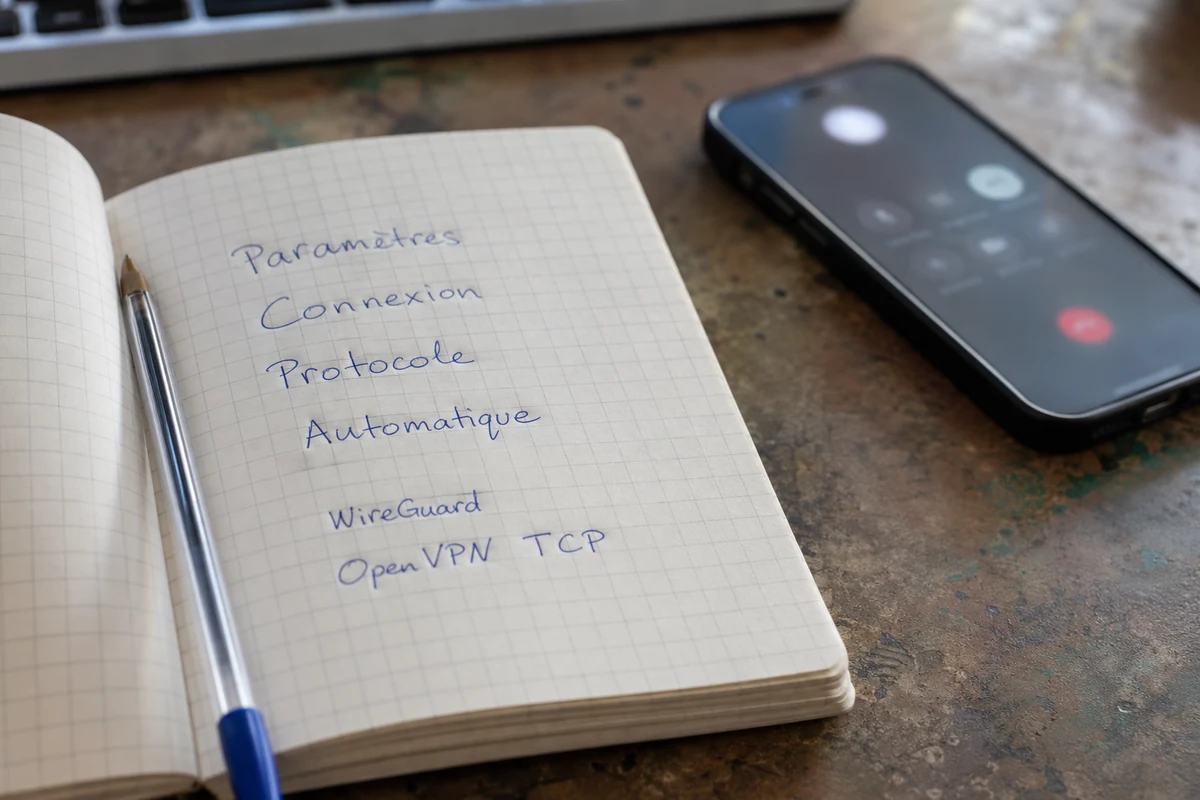 Paramètres
Connexion
Protocole
Automatique
WireGuard
OpenVPN TCP